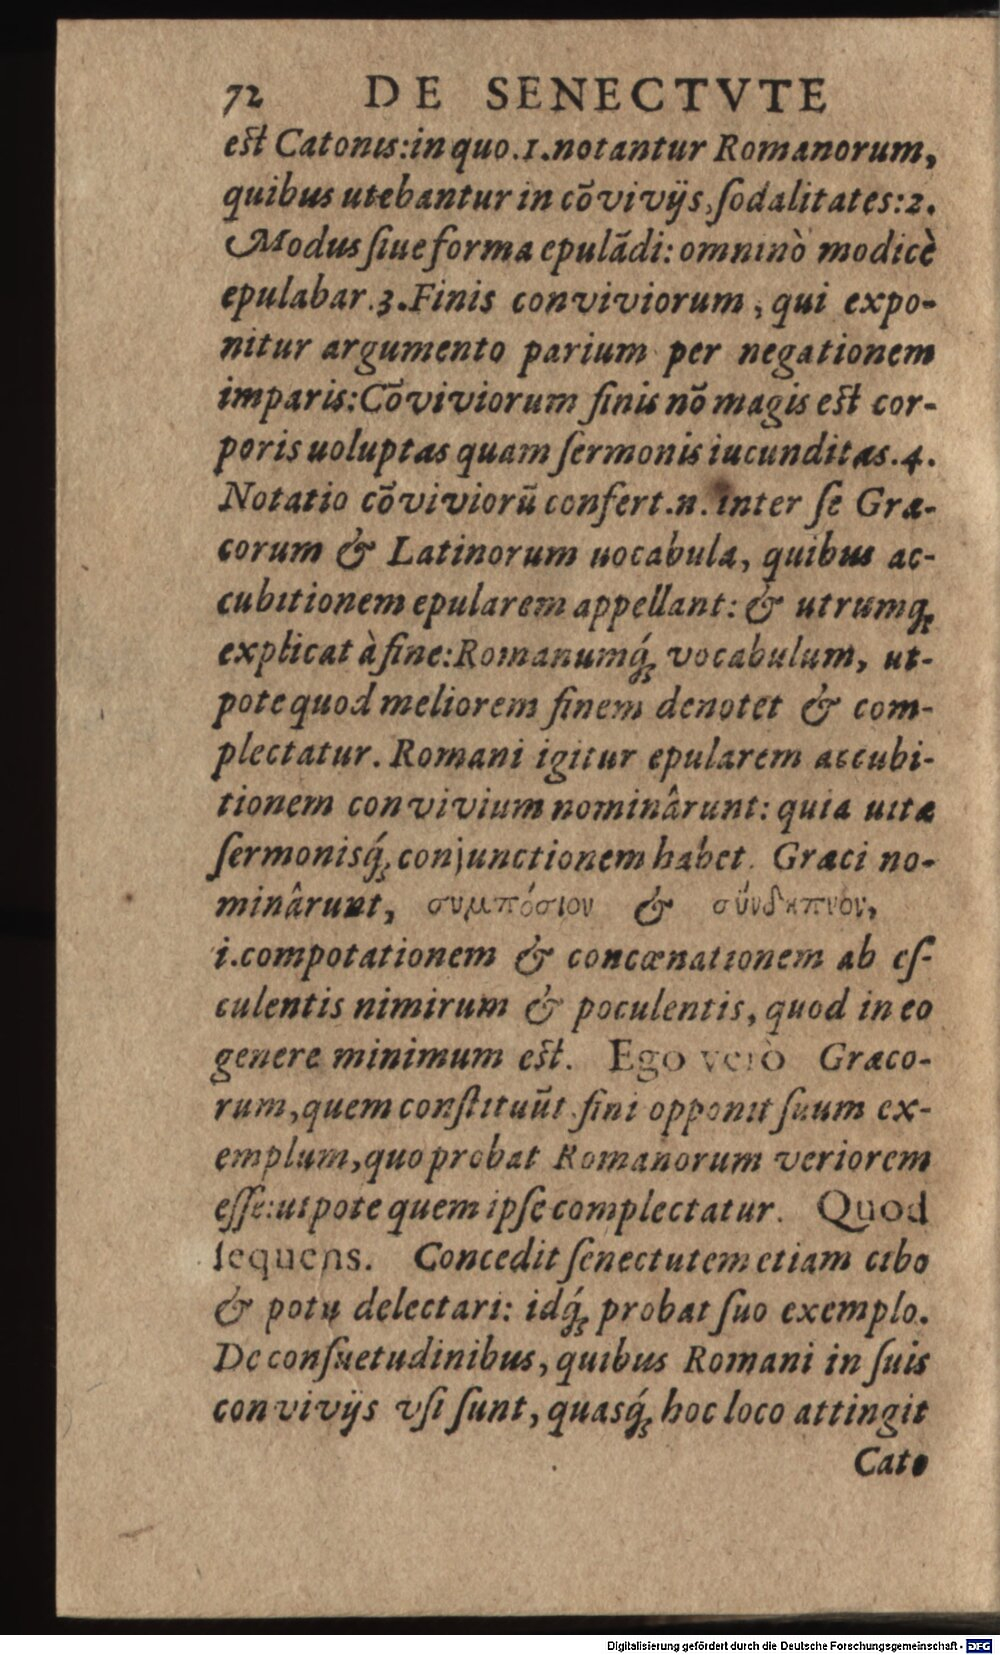 72 DE SENECTVTE
eſt Catonis: in quo .1. notantur Romanorum,
quibus utebantur in cõvivijs, ſodalitates: 2.
Modus ſiue forma epulãdi: omninò modicè
epulabar. 3. Finis conviviorum, qui expo-
nitur argumento parium per negationem
imparis: Cõviviorum finis nõ magis eſt cor-
poris uoluptas quam ſermonis iucunditas. 4.
Notatio cõviviorũ confert .n. inter ſe Græ-
corum & Latinorum uocabula, quibus ac-
cubitionem epularem appellant: & utrumq́;
explicat à fine: Romanumq́; vocabulum, ut-
pote quod meliorem finem denotet & com-
plectatur. Romani igitur epularem accubi-
tionem convivium nominârunt: quia uitæ
ſermonisq́; conjunctionem habet. Græci no-
minârunt, συμπόσιον & σύνδειπνον,
i. compotationem & concœnationem ab eſ-
culentis nimirum & poculentis, quod in eo
genere minimum eſt. Ego verò Græco-
rum, quem conſtituũt fini opponit ſuum ex-
emplum, quo probat Romanorum veriorem
eſſe: utpote quem ipſe complectatur. Quod
ſequens. Concedit ſenectutem etiam cibo
& potu delectari: idq́; probat ſuo exemplo.
De conſuetudinibus, quibus Romani in ſuis
convivijs vſi ſunt, quasq́; hoc loco attingit
Cato
Digitalisierung gefördert durch die Deutsche Forschungsgemeinschaft - DFG